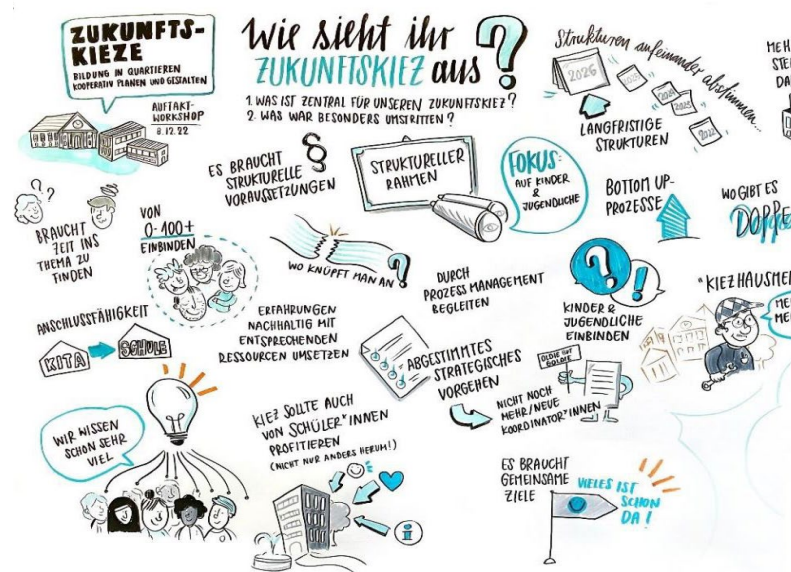 ZUKUNFTS-
KIEZE
BILDUNG IN QUARTIEREN
KOOPERATIV PLANEN UND GESTALTEN
AUFTAKT-
WORKSHOP
8.12.22
Wie sieht ihr
ZUKUNFTSKIEZ aus
?
1. WAS IST ZENTRAL FÜR UNSEREN ZUKUNFTSKIEZ?
2. WAS WAR BESONDERS UMSTRITTEN?
Strukturen aufeinander abstimmen...
2026
2025
2024
2023
2022
LANGFRISTIGE
STRUKTUREN
ES BRAUCHT
STRUKTURELLE
VORAUSSETZUNGEN
§
STRUKTURELLER
RAHMEN
FOKUS:
AUF KINDER
&
JUGENDLICHE
BOTTOM UP-
PROZESSE
WO GIBT ES
? ?
BRAUCHT
ZEIT INS
THEMA ZU
FINDEN
VON
0-100+
EINBINDEN
WO KNÜPFT MAN AN
?
DURCH
PROZESS MANAGEMENT
BEGLEITEN
? !
KINDER &
JUGENDLICHE
EINBINDEN
ANSCHLUSSFÄHIGKEIT
KITA
SCHULE
ERFAHRUNGEN
NACHHALTIG MIT
ENTSPRECHENDEN
RESSOURCEN UMSETZEN
ABGESTIMMTES
STRATEGISCHES
VORGEHEN
OLDIE BUT
GOLDIE
NICHT NOCH
MEHR/NEUE
KOORDINATOR*INNEN
WIR WISSEN
SCHON SEHR
VIEL
KIEZ SOLLTE AUCH
VON SCHÜLER*INNEN
PROFITIEREN
(NICHT NUR ANDERS HERUM!)
i
ES BRAUCHT
GEMEINSAME
ZIELE
VIELES IST
SCHON
DA!